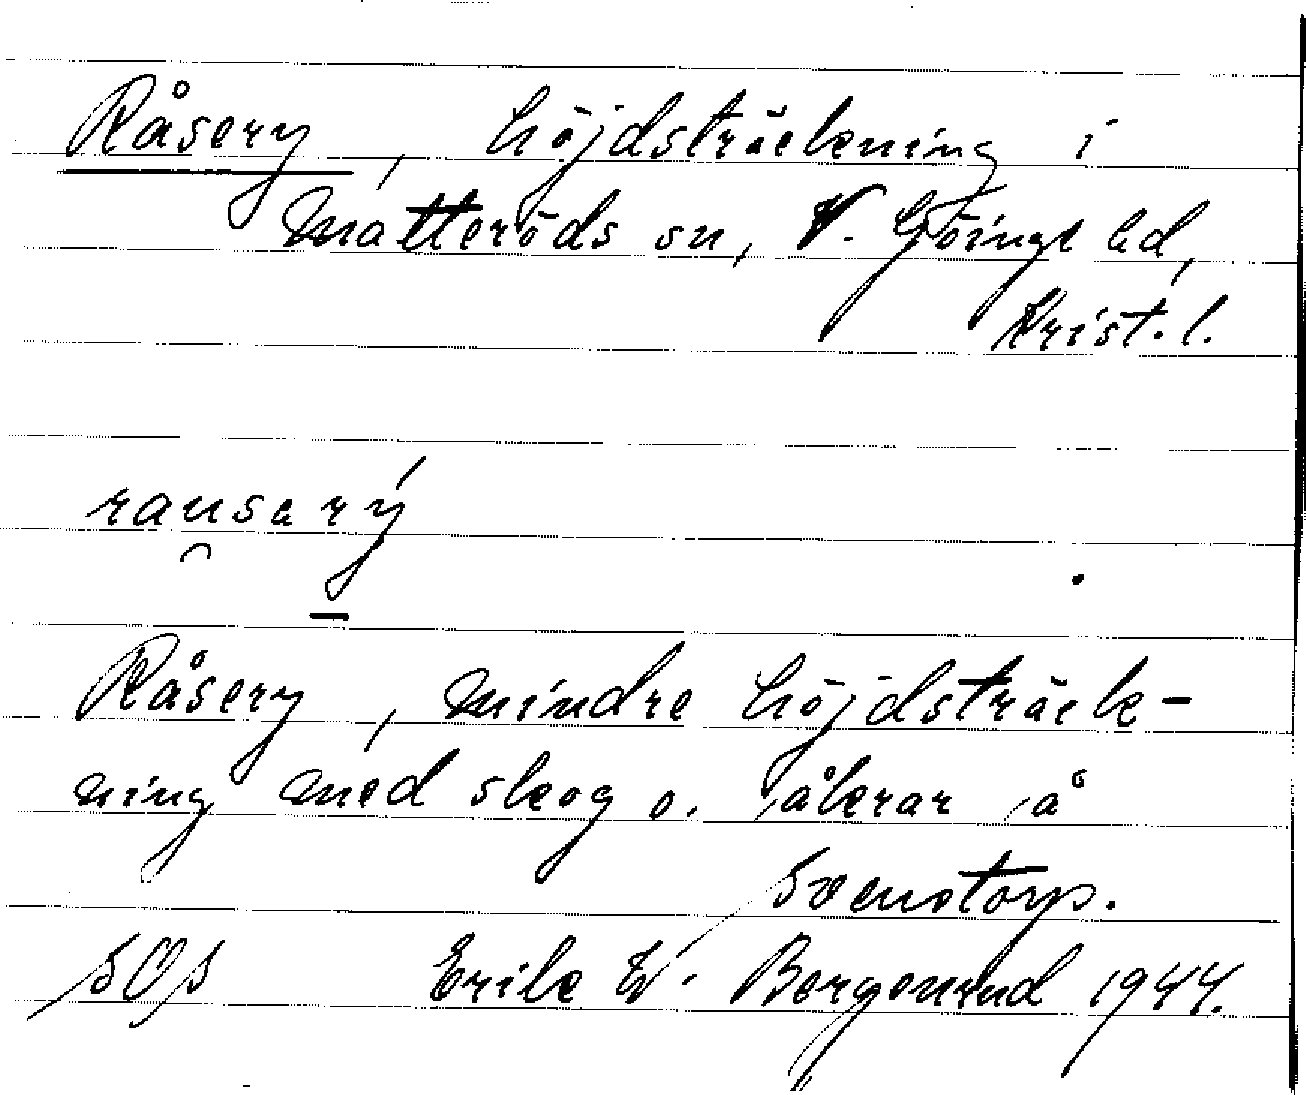 Råsery, höjdsträckning i
Matteröds sn, V. Göinge hd,
Krist. l.
rausarý
Råsery, mindre höjdsträck-
ning med skog o. åkrar å
Svenstorp.
SOS Erik W. Bergenrud 1944.